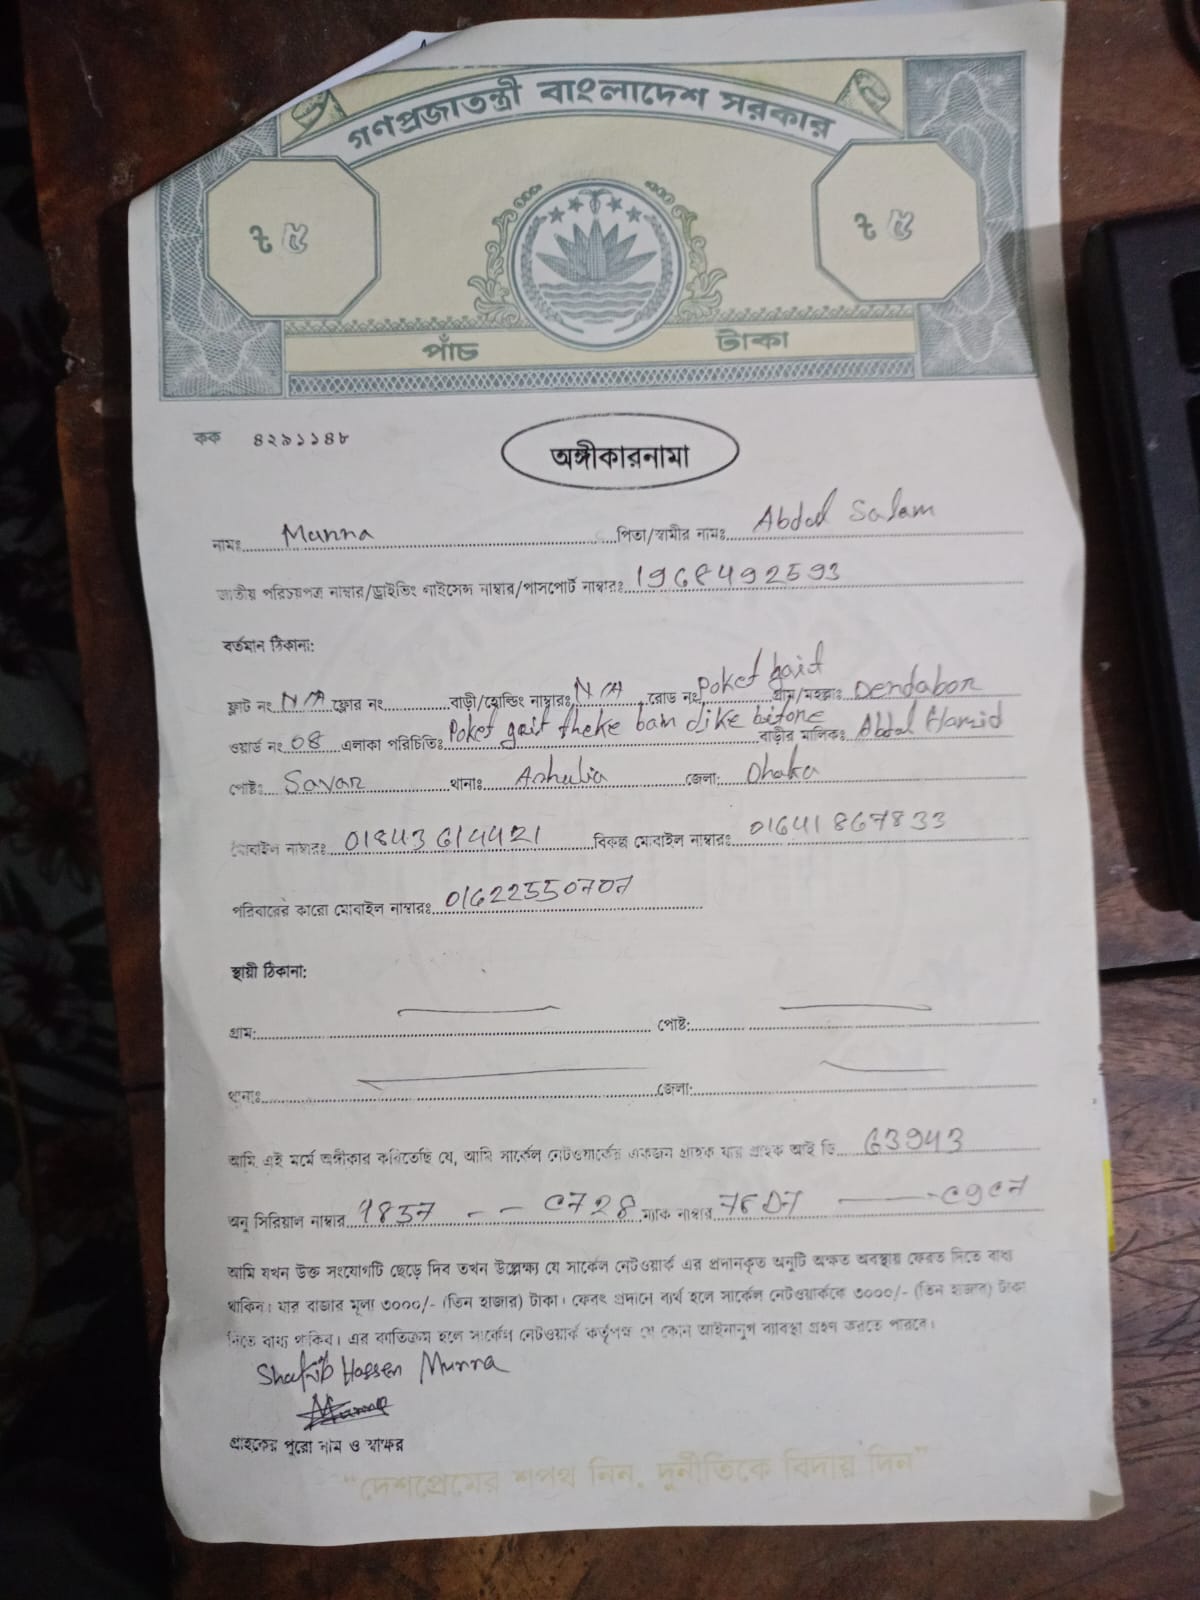 গণপ্রজাতন্ত্রী বাংলাদেশ সরকার
৳ ৫ ৳ ৫
পাঁচ টাকা
কক ৪২৯১১৪৮
অঙ্গীকারনামা
নামঃ Munna পিতা/স্বামীর নামঃ Abdul Salam
জাতীয় পরিচয়পত্র নাম্বার/ড্রাইভিং লাইসেন্স নাম্বার/পাসপোর্ট নাম্বারঃ 1968492593
বর্তমান ঠিকানা:
ফ্লাট নং N/A ফ্লোর নং বাড়ী/হোল্ডিং নাম্বারঃ N/A রোড নং Poket gait গ্রাম/মহল্লাঃ Dendabor
ওয়ার্ড নং 08 এলাকা পরিচিতিঃ Poket gait theke bam dike bifone বাড়ীর মালিকঃ Abdul Hamid
পোষ্টঃ Savar থানাঃ Ashulia জেলা: Dhaka
মোবাইল নাম্বারঃ 01843614421 বিকল্প মোবাইল নাম্বারঃ 01641867833
পরিবারের কারো মোবাইল নাম্বারঃ 01622550707
স্থায়ী ঠিকানা:
গ্রাম: পোষ্ট:
থানাঃ জেলা:
আমি এই মর্মে অঙ্গীকার করিতেছি যে, আমি সার্কেল নেটওয়ার্কের একজন গ্রাহক যার গ্রাহক আই ডি 63943
অনু সিরিয়াল নাম্বার 9857 - - C728 ম্যাক নাম্বার 76D7 - C9C7
আমি যখন উক্ত সংযোগটি ছেড়ে দিব তখন উল্লেক্ষ্য যে সার্কেল নেটওয়ার্ক এর প্রদানকৃত অনুটি অক্ষত অবস্থায় ফেরত দিতে বাধ্য
থাকিব। যার বাজার মূল্য ৩০০০/- (তিন হাজার) টাকা। ফেরৎ প্রদানে ব্যর্থ হলে সার্কেল নেটওয়ার্ককে ৩০০০/- (তিন হাজার) টাকা
দিতে বাধ্য থাকিব। এর ব্যতিক্রম হলে সার্কেল নেটওয়ার্ক কর্তৃপক্ষ যে কোন আইনানুগ ব্যাবস্থা গ্রহণ করতে পারবে।
Shakib Hossen Munna
গ্রাহকের পুরো নাম ও স্বাক্ষর
“দেশপ্রেমের শপথ নিন, দুর্নীতিকে বিদায় দিন”